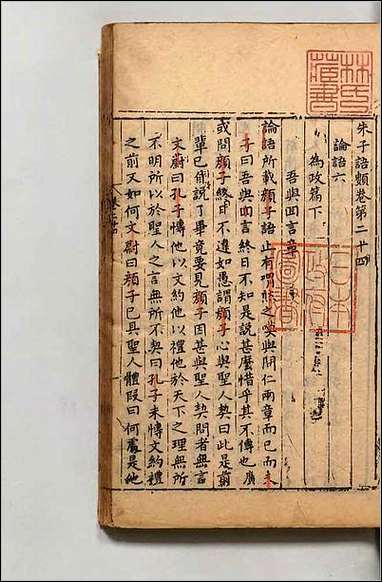 朱子語類卷第二十四
論語六
為政篇下
吾與回言章
論語所載顏子語止有喟然之嘆與問仁兩章而已而夫
子曰吾與回言終日不知是說甚麼惜乎其不傳也廣
或問顏子終日不違如愚謂顏子心與聖人契曰此是前
輩已自說了畢竟要見顏子因甚與聖人契問者無言
文蔚曰孔子博他以文約他以禮他於天下之理無所
不明所以於聖人之言無所不契曰孔子未博文約禮
之前又如何文蔚曰顏子已具聖人體段曰何處是他
林氏藏書
日本政府圖書